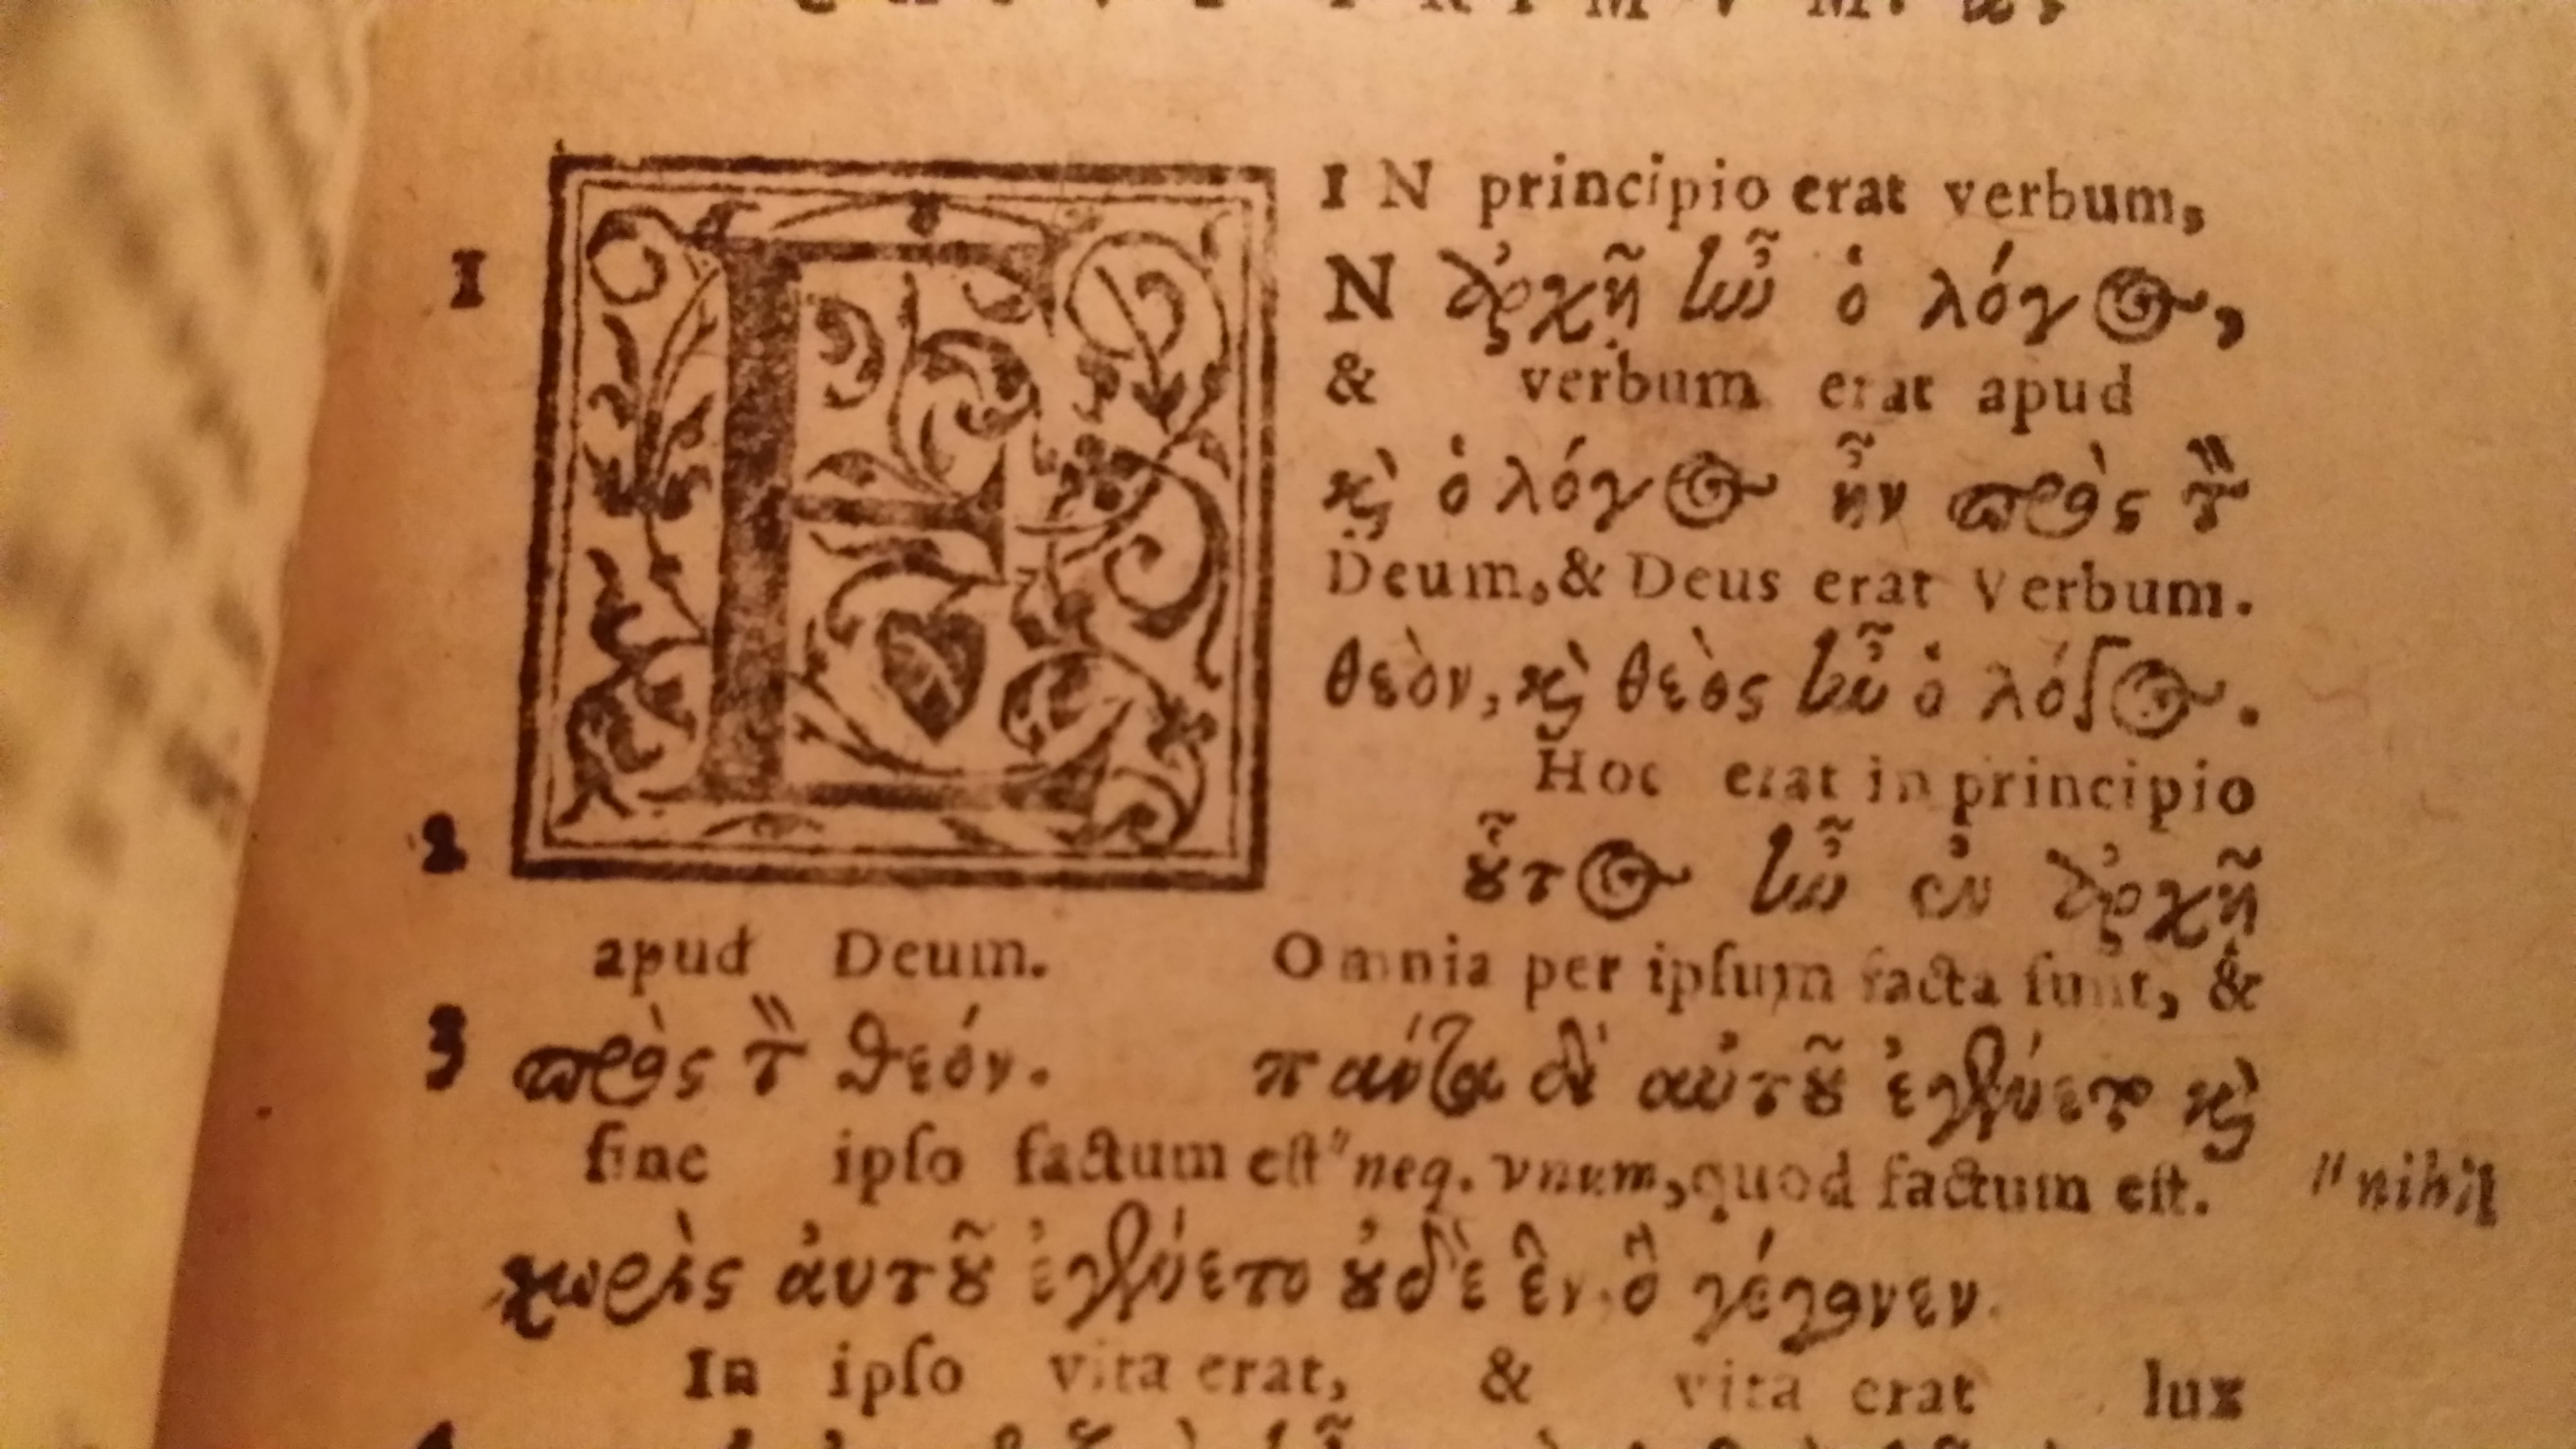 IN principio erat verbum,
1 EN ἀρχῇ ἦν ὁ λόγος,
& verbum erat apud
ϗ̀ ὁ λόγος ἦν πρὸς τ̏
Deum, & Deus erat Verbum.
θεὸν, ϗ̀ θεὸς ἦν ὁ λόγος.
Hoc erat in principio
2 ȣ̃τος ἦν ἐν ἀρχῇ
apud Deum. Omnia per ipſum facta ſunt, &
3 πρὸς τ̏ θεόν. πάντα δι' αὐτȣ̃ ἐγένετο ϗ̀
ſine ipſo factum eſt " neq. vnum, quod factum eſt. " nihil
χωρὶς ἀυτȣ̃ ἐγένετο ȣ̓δὲ ἓν, ὃ γέγονεν.
In ipſo vita erat, & vita erat lux